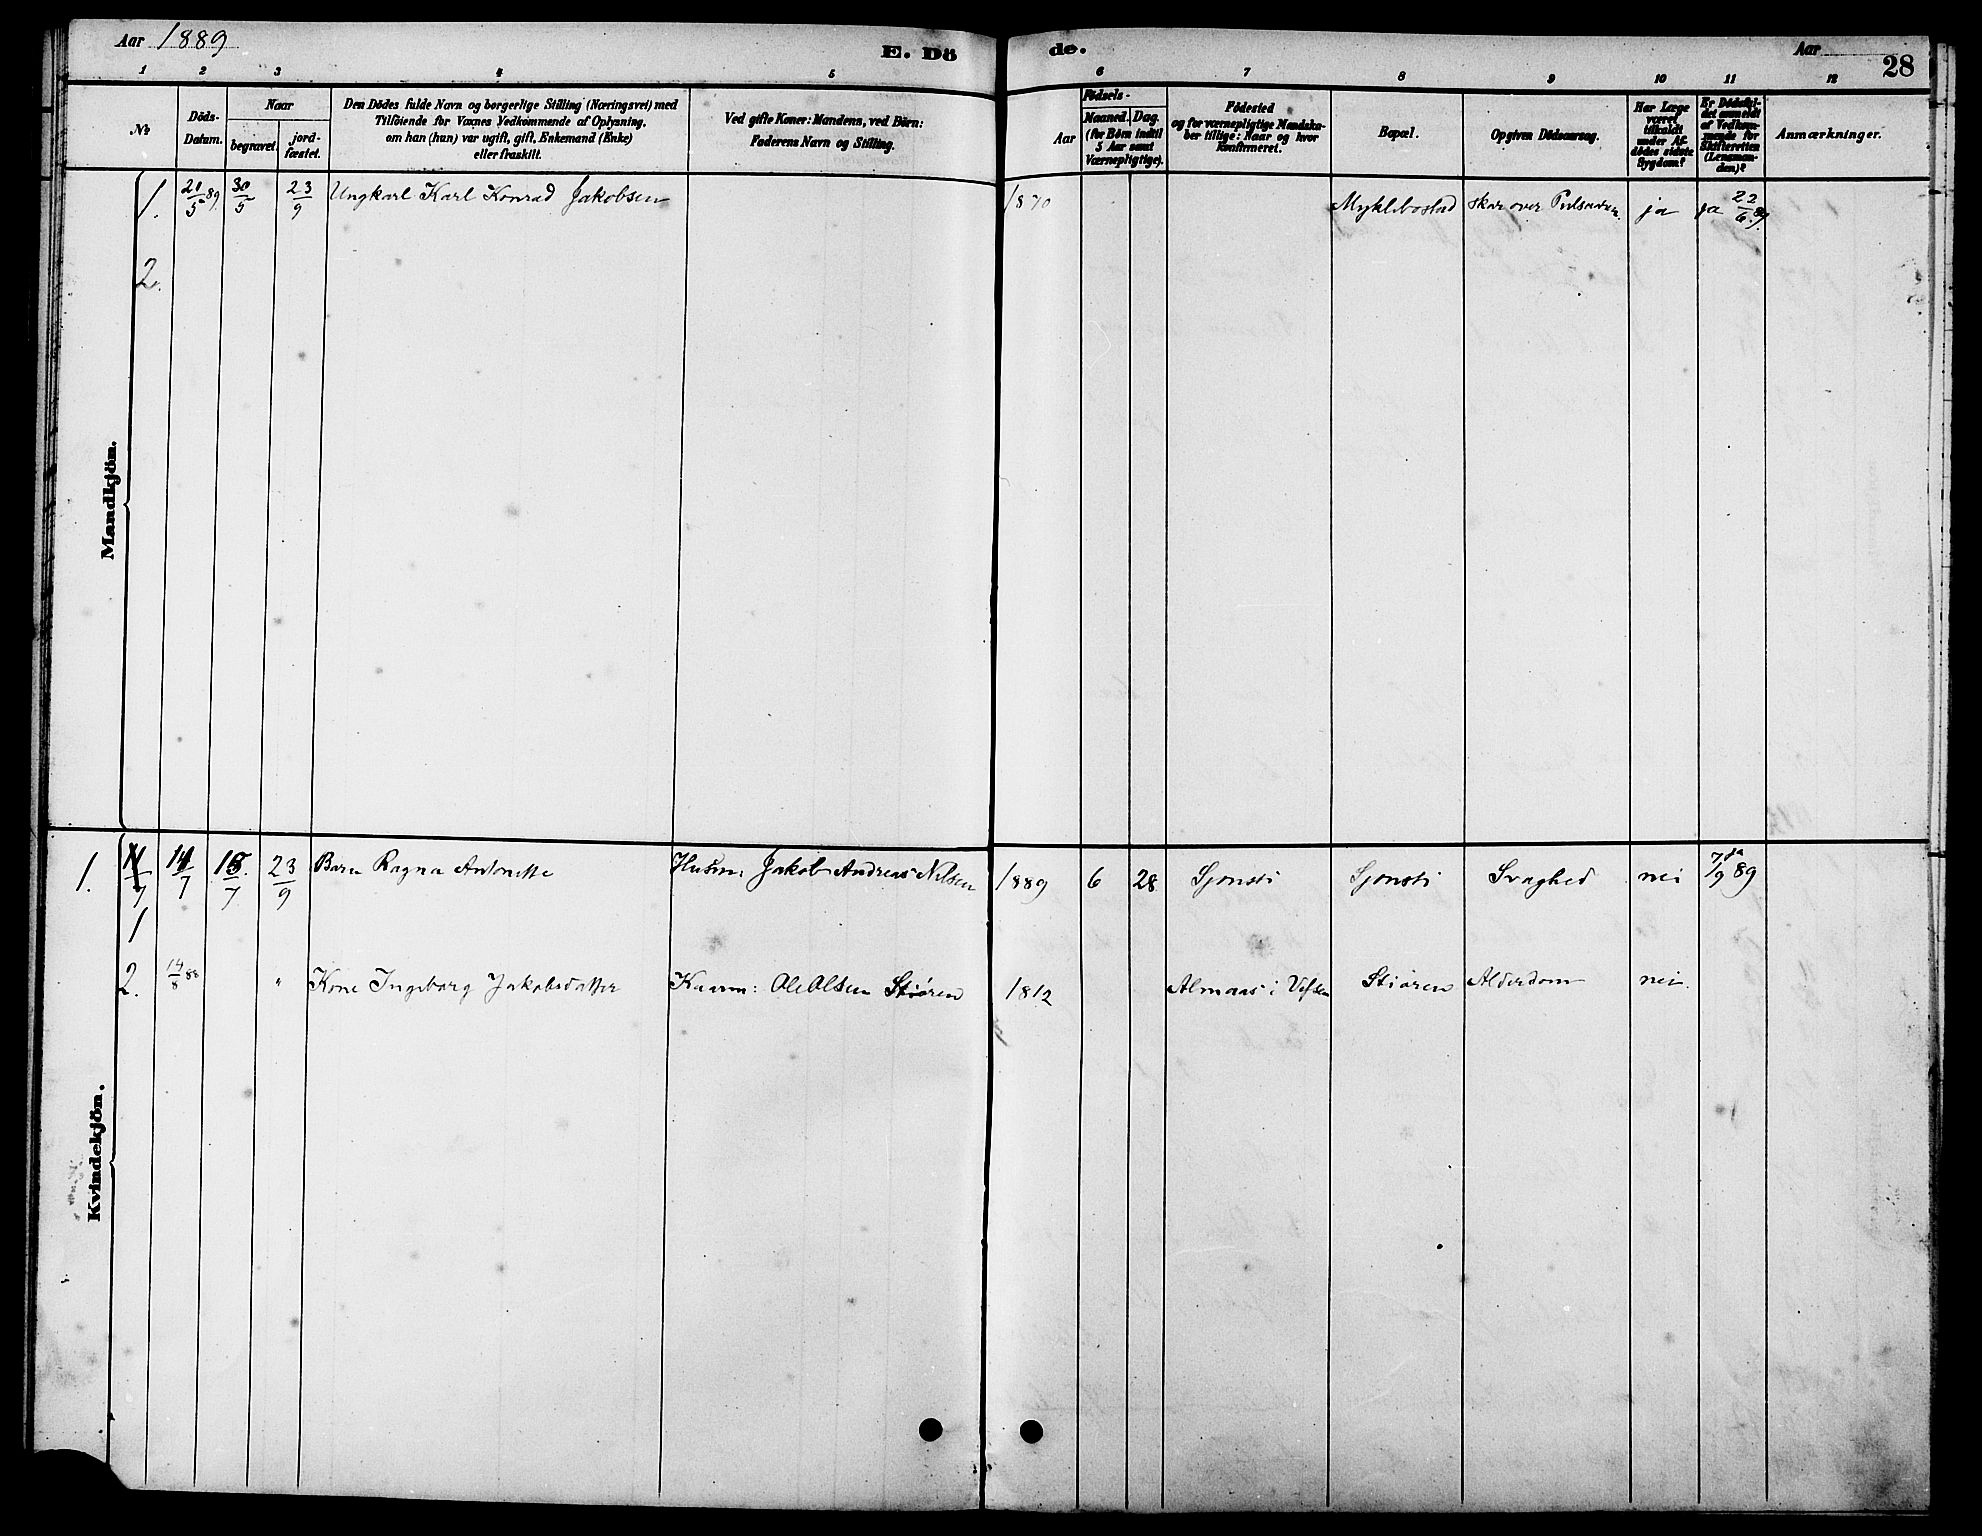 Aar 1889
E. Dö
de.
Aar
28
1 2 3 4 5 6 7 8 9 10 11 12
No
Döds-
Datum.
Naar
begravet.
jord-
fæstet.
Den Dödes fulde Navn og borgerlige Stilling (Næringsvei) med
Tilföiende for Voxnes Vedkommende af Oplysning,
om han (hun) var ugift, gift, Enkemand (Enke)
eller fraskilt.
Ved gifte Koner: Mandens, ved Börn:
Faderens Navn og Stilling.
Aar
Födsels-
Maaned. Dag.
(for Börn indtil
5 Aar samt
Værnepligtige).
Födested
og for værnepligtige Mandska-
ber tillige: Naar og hvor
konfirmeret.
Bopæl.
Opgiven Dödsaarsag.
Har Læge
været
tilkaldt
under Af-
dödes sidste
Sygdom?
Er Dödsfal-
det anmeldt
af Vedkom-
mende for
Skifteretten
(Lensman-
den)?
Anmærkninger.
Mandkjön.
1. 20/5 89. 30/5 23/9 Ungkarl Karl Konrad Jakobsen 1870 Myklebostad skar over Pulsaaren. ja ja 22/6 89.
2.
Kvindekjön.
1. 11/7 14/7 15/7 23/9 Barn Ragna Antonette Husm: Jakob Andreas Nilsen 1889 6 28 Sjonsti Sjonsti Svaghed nei ja 7/9 89
1
2. 14/8 88 " Kone Ingeborg Jakobsdatter Kaarm: Ole Olsen Stiøren 1812 Almaas i Vefsen Stiøren Alderdom nei.